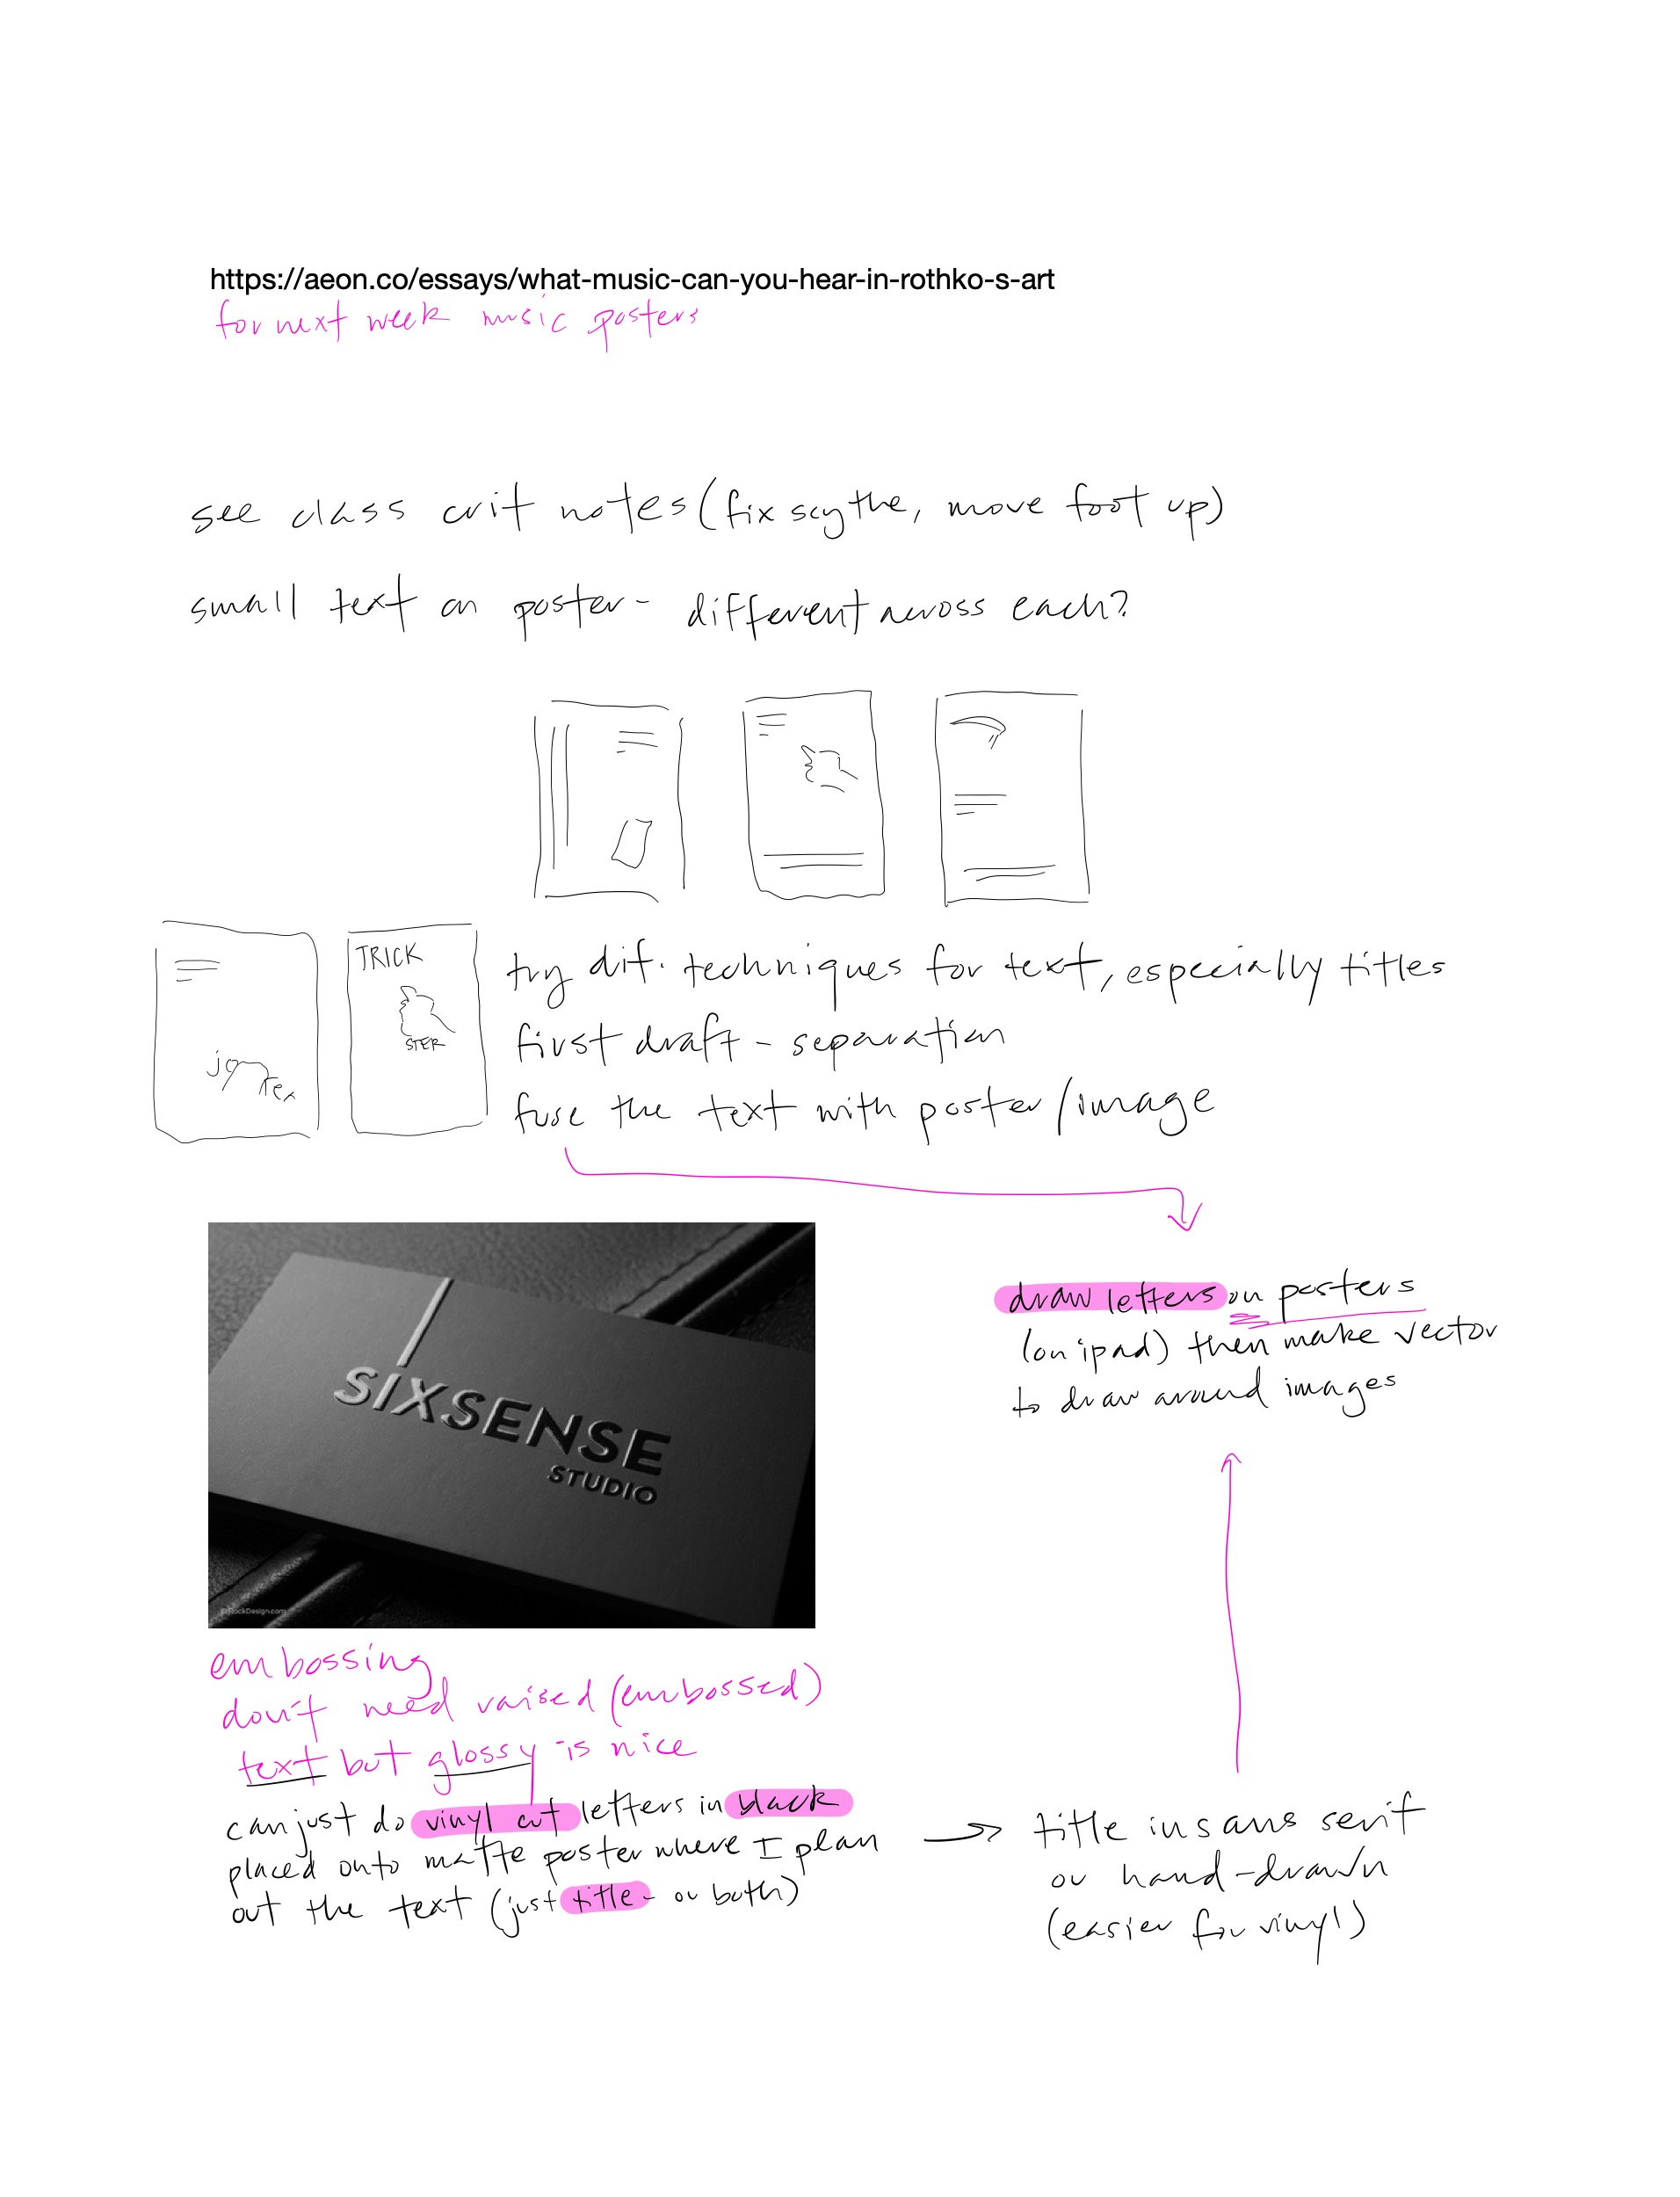 https://aeon.co/essays/what-music-can-you-hear-in-rothko-s-art
for next week music posters
see class crit notes (fix scythe, move foot up)
small text on poster - different across each?
TRICK
STER
try dif. techniques for text, especially titles
first draft - separation
fuse the text with poster/image
draw letters on posters
(on ipad) then make vector
to draw around images
SIXSENSE
STUDIO
RockDesign.com
embossing
don't need raised (embossed)
text but glossy is nice
can just do vinyl cut letters in black
placed onto matte poster where I plan
out the text (just title - or both)
title in sans serif
or hand-drawn
(easier for vinyl)